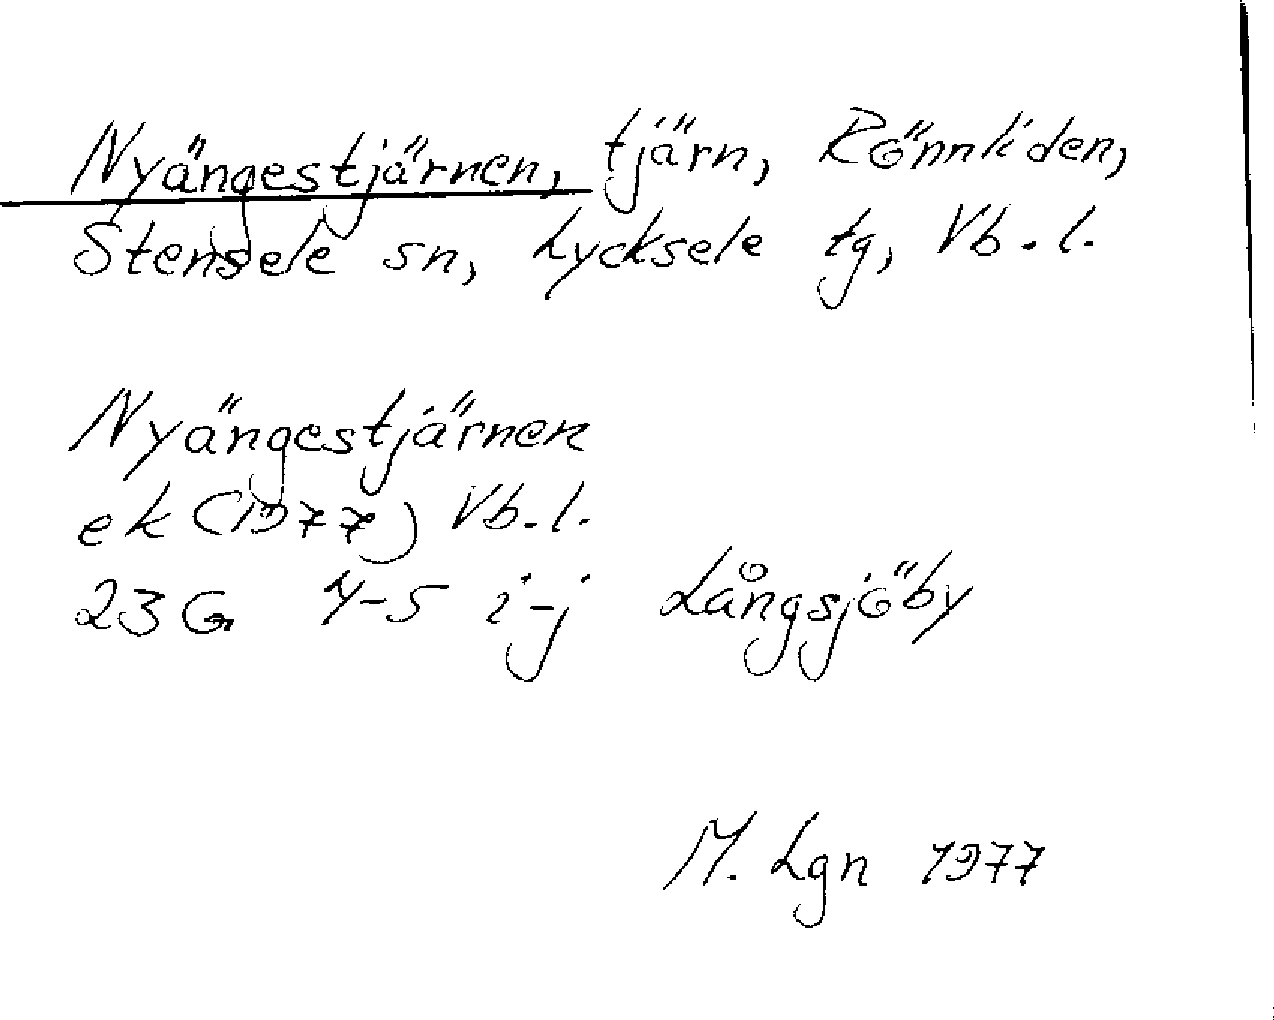 Nyängestjärnen, tjärn, Rönnliden,
Stensele sn, Lycksele tg, Vb.l.
Nyängestjärnen
ek (1977) Vb.l.
23 G 4-5 i-j Långsjöby
M. Lgn 1977